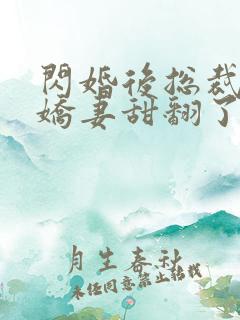 閃婚後总裁
嬌妻甜翻了
月生春秋
未经同意禁止转载